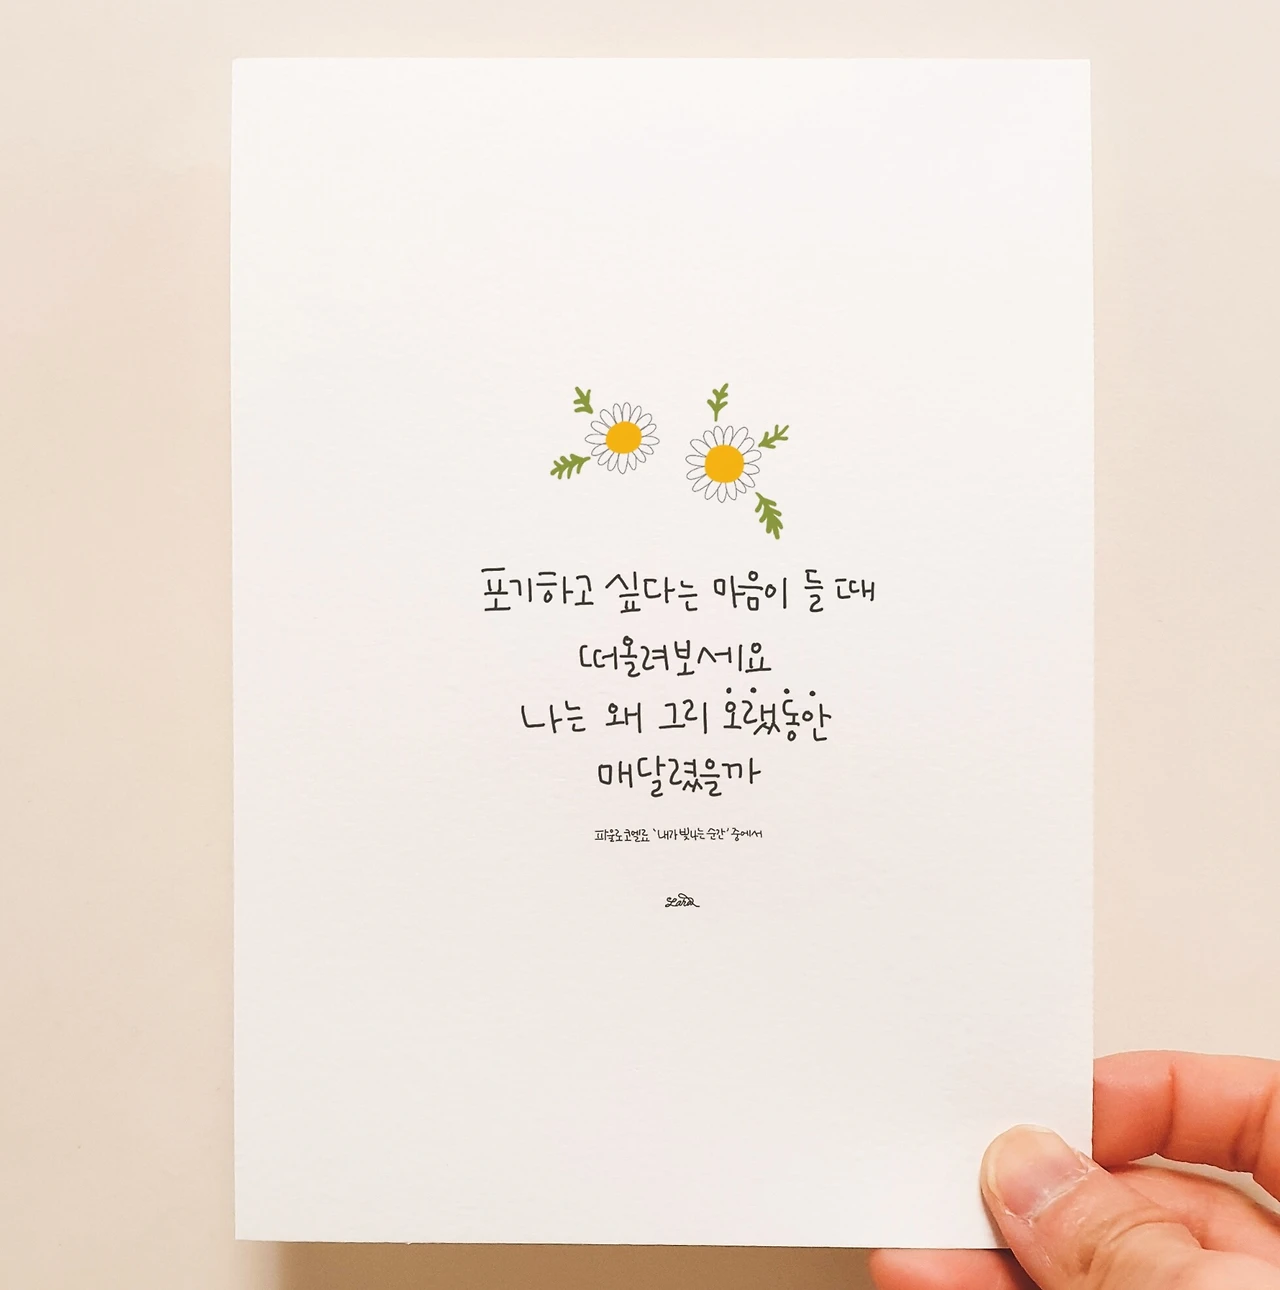 포기하고 싶다는 마음이 들 때
떠올려보세요
나는 왜 그리 오랬동안
매달렸을까
파울로코엘료 '내가 빛나는 순간' 중에서
Lara